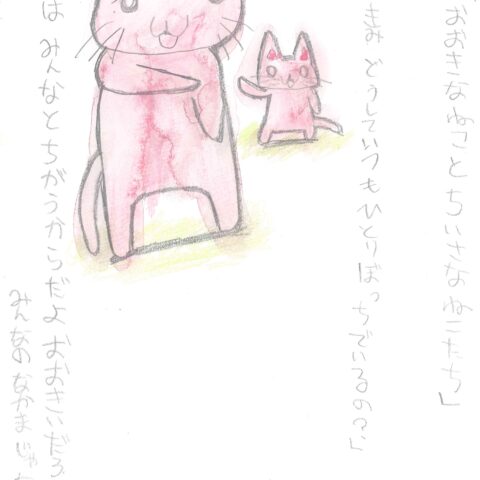 おおきなねことちいさなねこたち」
きみ どうしていつもひとりぼっちでいるの?」
は みんなとちがうからだよ おおきいだろ
みんなの なかまじゃ